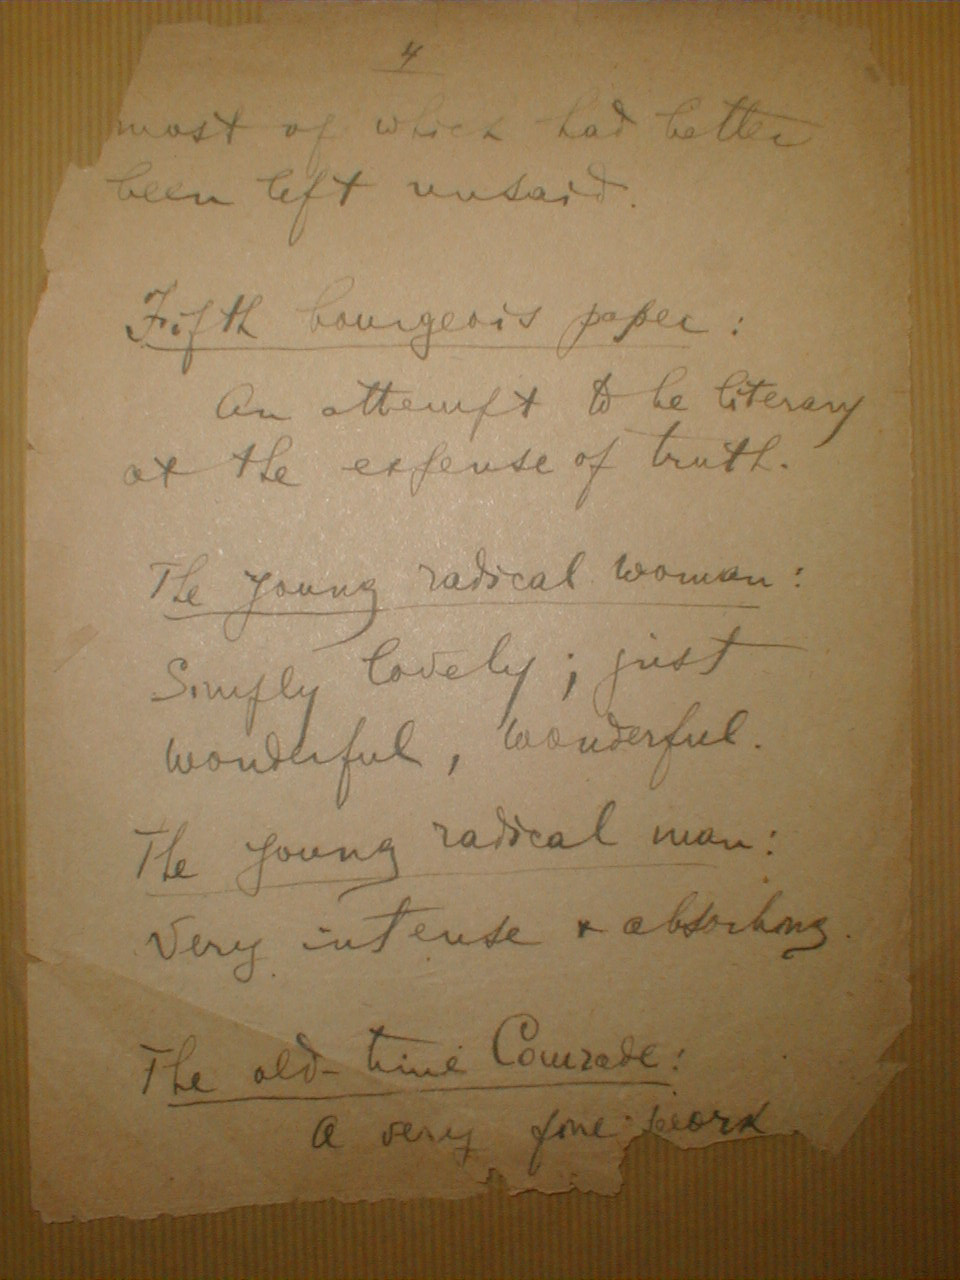 4
most of which had better
been left unsaid.
Fifth bourgeois paper:
An attempt to be literary
at the expense of truth.
The young radical woman:
Simply lovely; just
wonderful, wonderful.
The young radical man:
Very intense & absorbing.
The old-time Comrade:
A very fine work